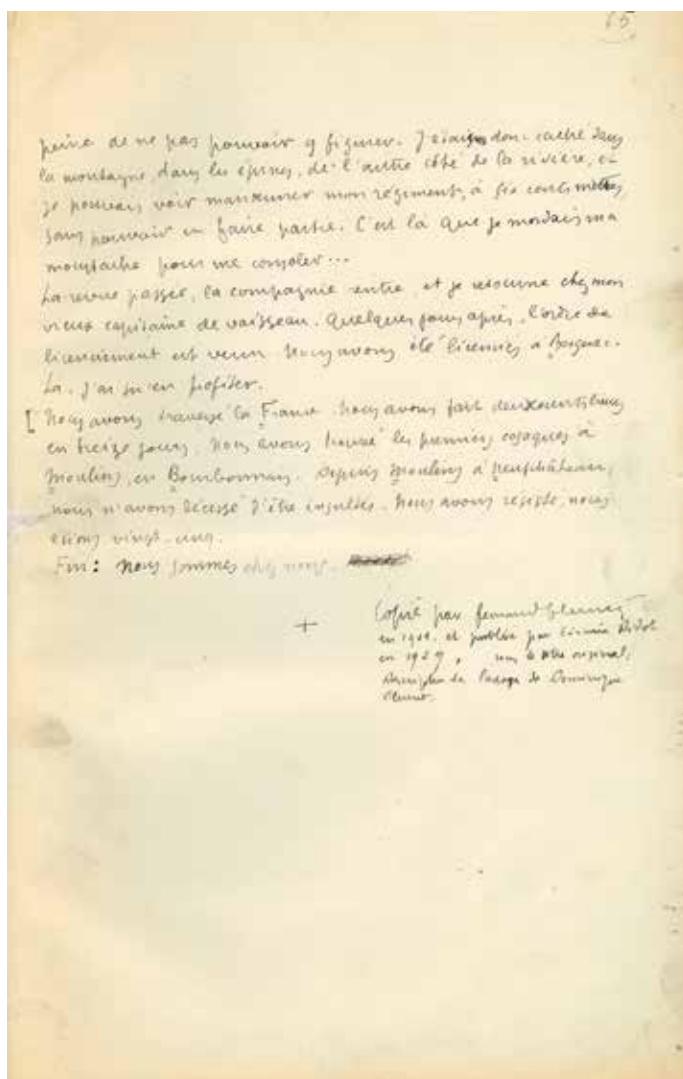 65
peine de ne pas pouvoir y figurer. J'étais donc caché dans
la montagne, dans les épines, de l'autre côté de la rivière, et
je pouvais voir manœuvrer mon régiment, à six cents mètres,
sans pouvoir en faire partie. C'est là que je mordais ma
moustache pour me consoler...
La revue passée, la compagnie rentre, et je retourne chez mon
vieux capitaine de vaisseau. Quelques jours après, l'ordre de
licenciement est venu. Nous avons été licenciés à
Là. J'ai su en profiter.
[ Nous avons traversé la France. Nous avons fait deux cents lieues
en treize jours. Nous avons trouvé les premiers cosaques à
Moulins, en Bourbonnais. Depuis Moulins à Neufchâteau,
nous n'avons décessé d'être insultés. Nous avons résisté, nous
étions vingt-cinq.
Fin: Nous sommes chez nous.
+
Copié par Fernand
en et publié par
en 1929, sous le titre original,
de de Dominique